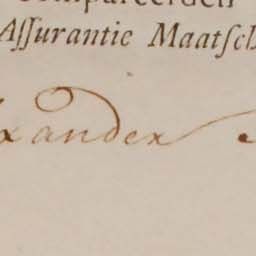 Compareerden
Aſſurantie Maatſch
xander